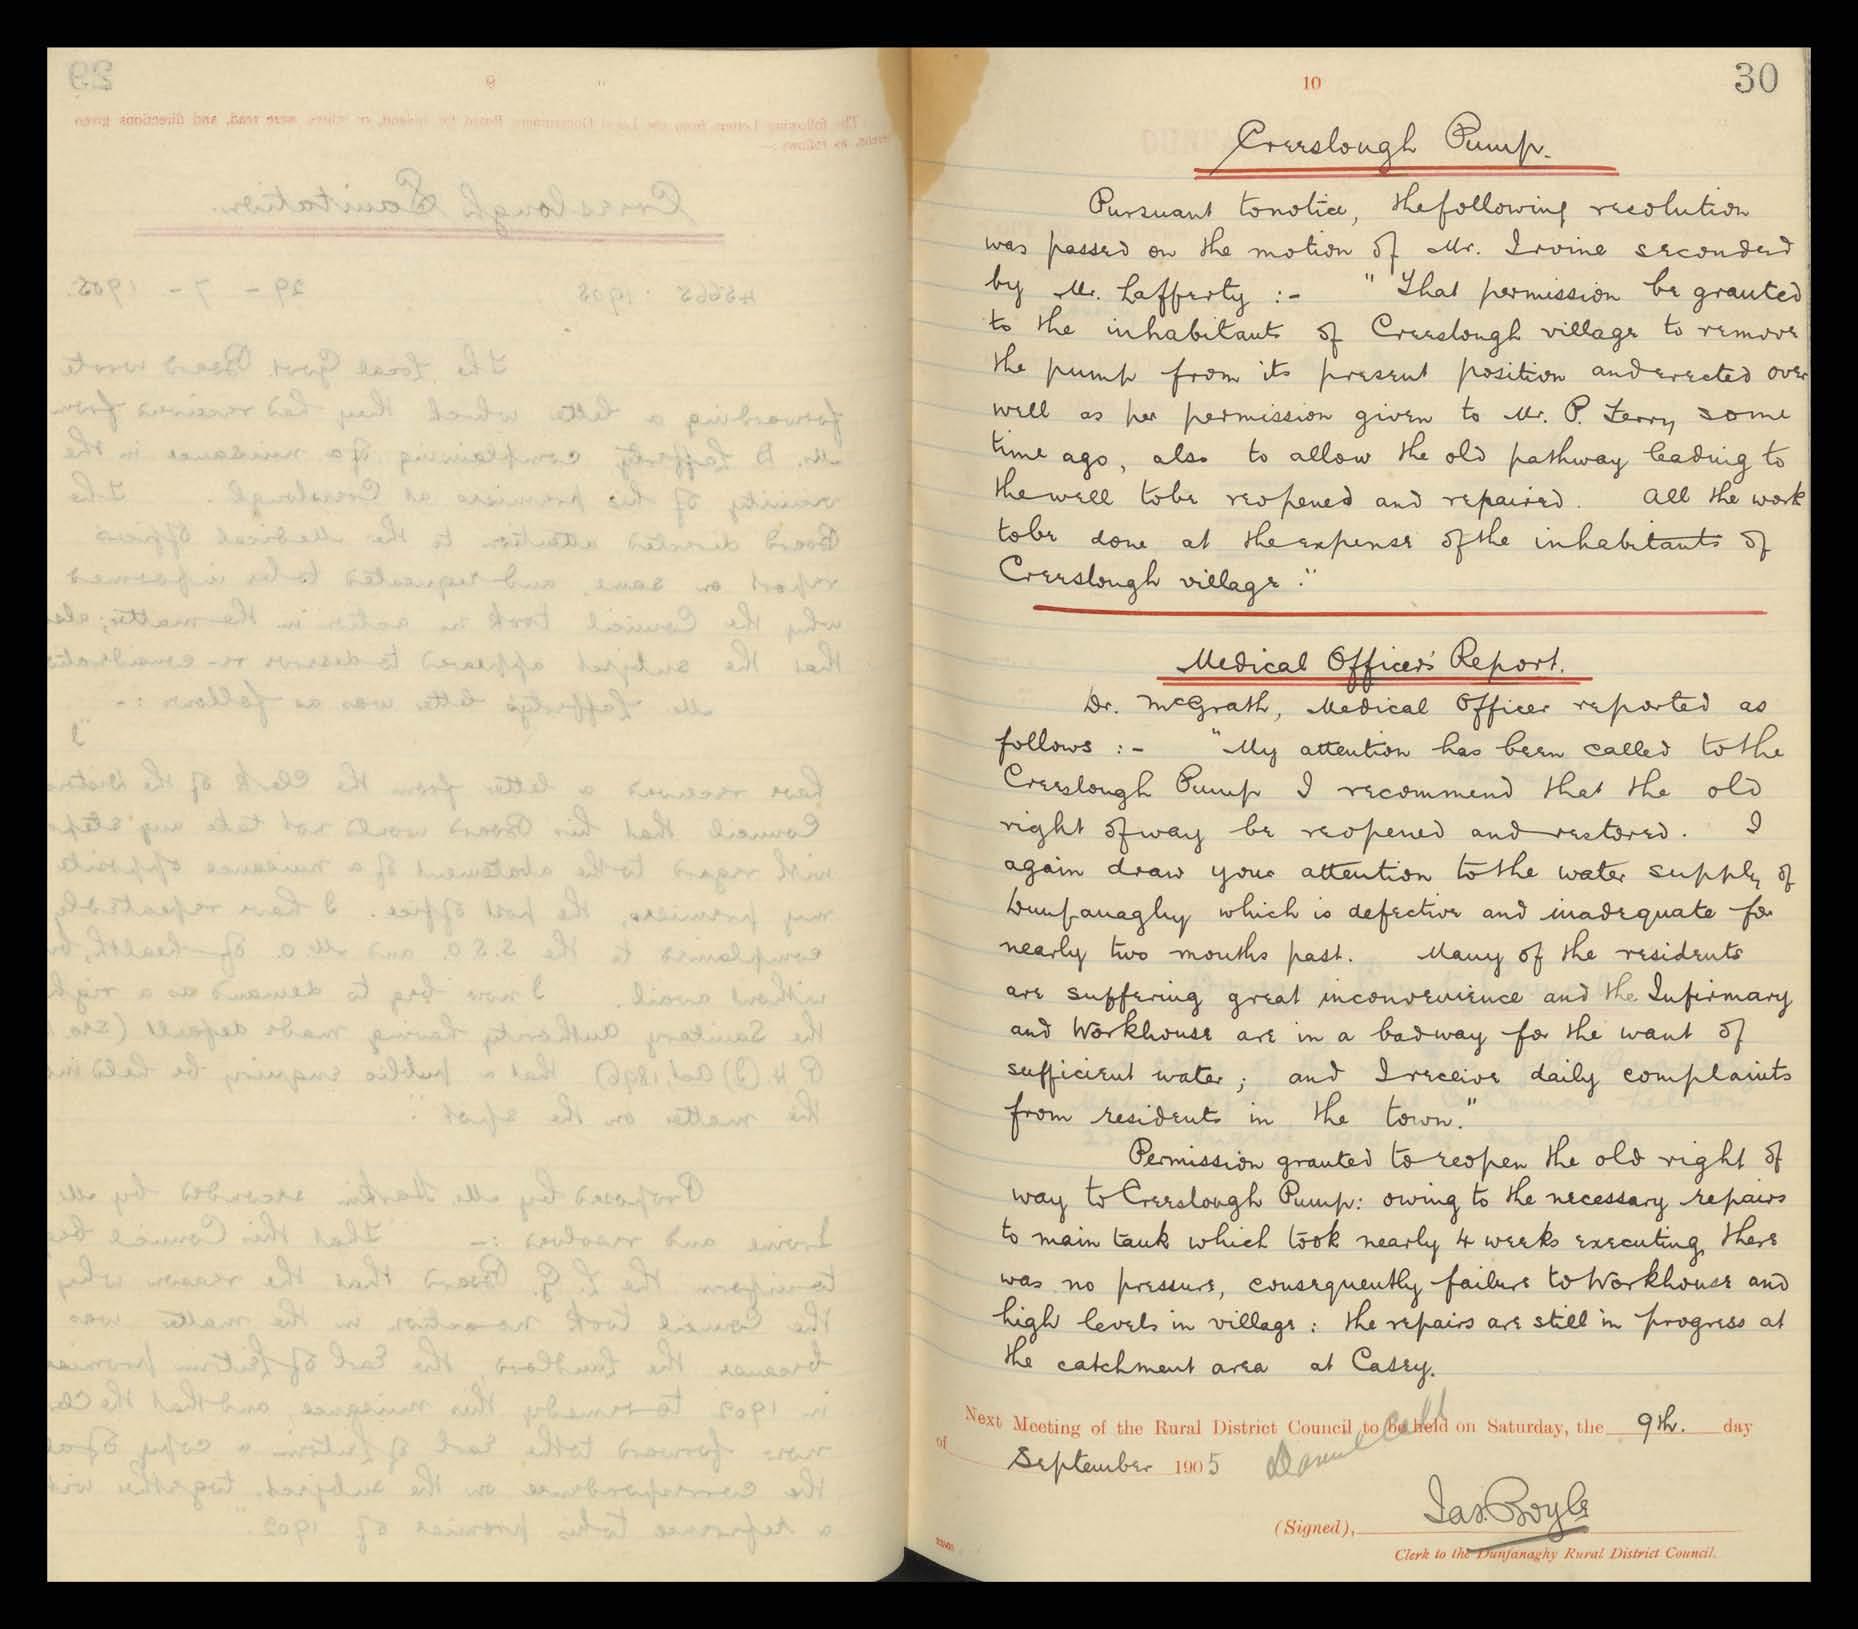 10
30
Creeslough Pump.
Pursuant to notice, the following resolution
was passed on the motion of Mr. Irvine seconded
by Mr. Lafferty :- "That permission be granted
to the inhabitants of Creeslough village to remove
the pump from its present position and erected over
well as per permission given to Mr. P. Ferry some
time ago, also to allow the old pathway leading to
the well to be reopened and repaired. All the work
to be done at the expense of the inhabitants of
Creeslough village."
Medical Officer's Report.
Dr. McGrath, Medical Officer reported as
follows :- "My attention has been called to the
Creeslough Pump I recommend that the old
right of way be reopened and restored. I
again draw your attention to the water supply of
Dunfanaghy which is defective and inadequate for
nearly two months past. Many of the residents
are suffering great inconvenience and the Infirmary
and Workhouse are in a bad way for the want of
sufficient water; and I receive daily complaints
from residents in the town."
Permission granted to reopen the old right of
way to Creeslough Pump: owing to the necessary repairs
to main tank which took nearly 4 weeks executing, there
was no pressure, consequently failure to Workhouse and
high levels in village: the repairs are still in progress at
the catchment area at Casey.
Next Meeting of the Rural District Council to be held on Saturday, the 9th. day
of September 1905
(Signed), Jas. Boyle
Clerk to the Dunfanaghy Rural District Council.